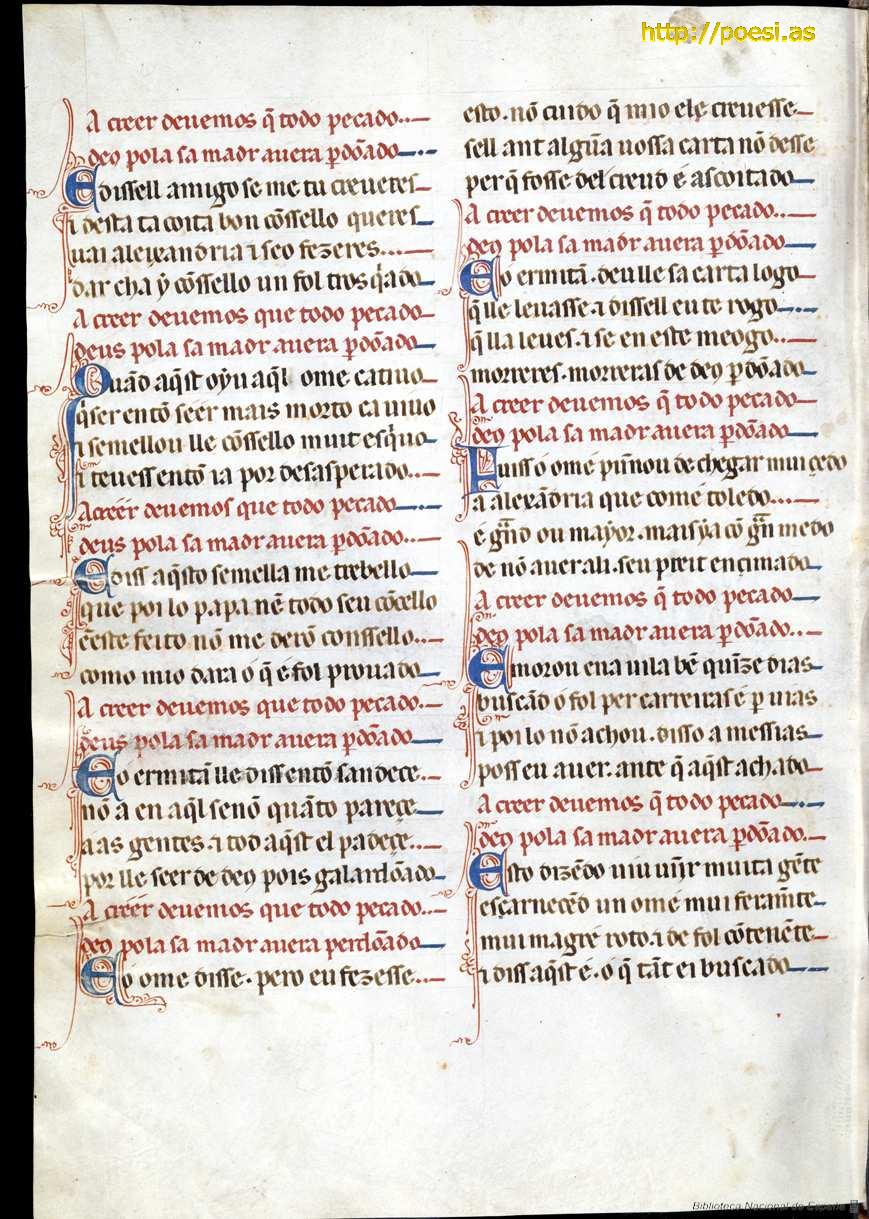 http://poesi.as
A creer deuemos q̃ todo pecado
deꝯ pola sa madr auera p̃dõado
E dissell amigo se me tu creueres
i desta ta coita bon cõssello queres
uai aleixandria i seo fezeres
dar cha ỹ cõssello un fol trosq̃ado
A creer deuemos que todo pecado
deus pola sa madr auera p̃dõado
Quãd aq̃st oyu aq̃l ome catiuo
q̃ser entõ seer mais morto ca uiuo
i semellou lle cõssello muit esq̃uo
i teuess entõ ia por desasperado
A creer deuemos que todo pecado
deus pola sa madr auera p̃dõado
E diss aq̃sto semella me trebello
que poilo papa nẽ todo seu cõcello
ẽeste feito nõ me derõ conssello
como mio dara ó q̃ é fol prouado
A creer deuemos que todo pecado
deus pola sa madr auera p̃dõado
E o ermitã lle diss entõ sandece
nõ a en aq̃l senõ quãto pareçe
áas gentes i tod aq̃st el padeçe
por lle seer de deꝯ pois galardõado
A creer deuemos que todo pecado
deꝯ pola sa madr auera perdõado
E ó ome disse pero eu fezesse
esto nõ cuido q̃ mio ele creuesse
sell ant algũa uossa carta nõ desse
per q̃ fosse del creud é ascoitado
A creer deuemos q̃ todo pecado
deꝯ pola sa madr auera p̃dõado
E o ermitã deulle sa carta logo
q̃ lle leuasse i dissell eu te rogo
q̃ lla leues i se en este meogo
morreres morreras de deꝯ p̃dõado
A creer deuemos q̃ todo pecado
deꝯ pola sa madr auera p̃dõado
Puiss ó omé puñou de chegar mui çedo
a alexãdria que come toledo
é grãd ou mayor mais ya cõ grã medo
de nõ auer ali seu preit ençimado
A creer deuemos q̃ todo pecado
deꝯ pola sa madr auera p̃dõado
E morou ena uila bẽ quĩze dias
buscãd o fol per carreiras é p̃ uias
i poilo nõ achou disso a messias
poss eu auer ante q̃ aq̃st achado
A creer deuemos q̃ todo pecado
deꝯ pola sa madr auera p̃dõado
Esto dizẽdo uiu uĩir muita gẽte
escarnecẽd un omé mui feramẽte
mui magré roto i de fol cõtenẽte
i diss aq̃st é ó q̃ tãt ei buscado
Biblioteca Nacional de España